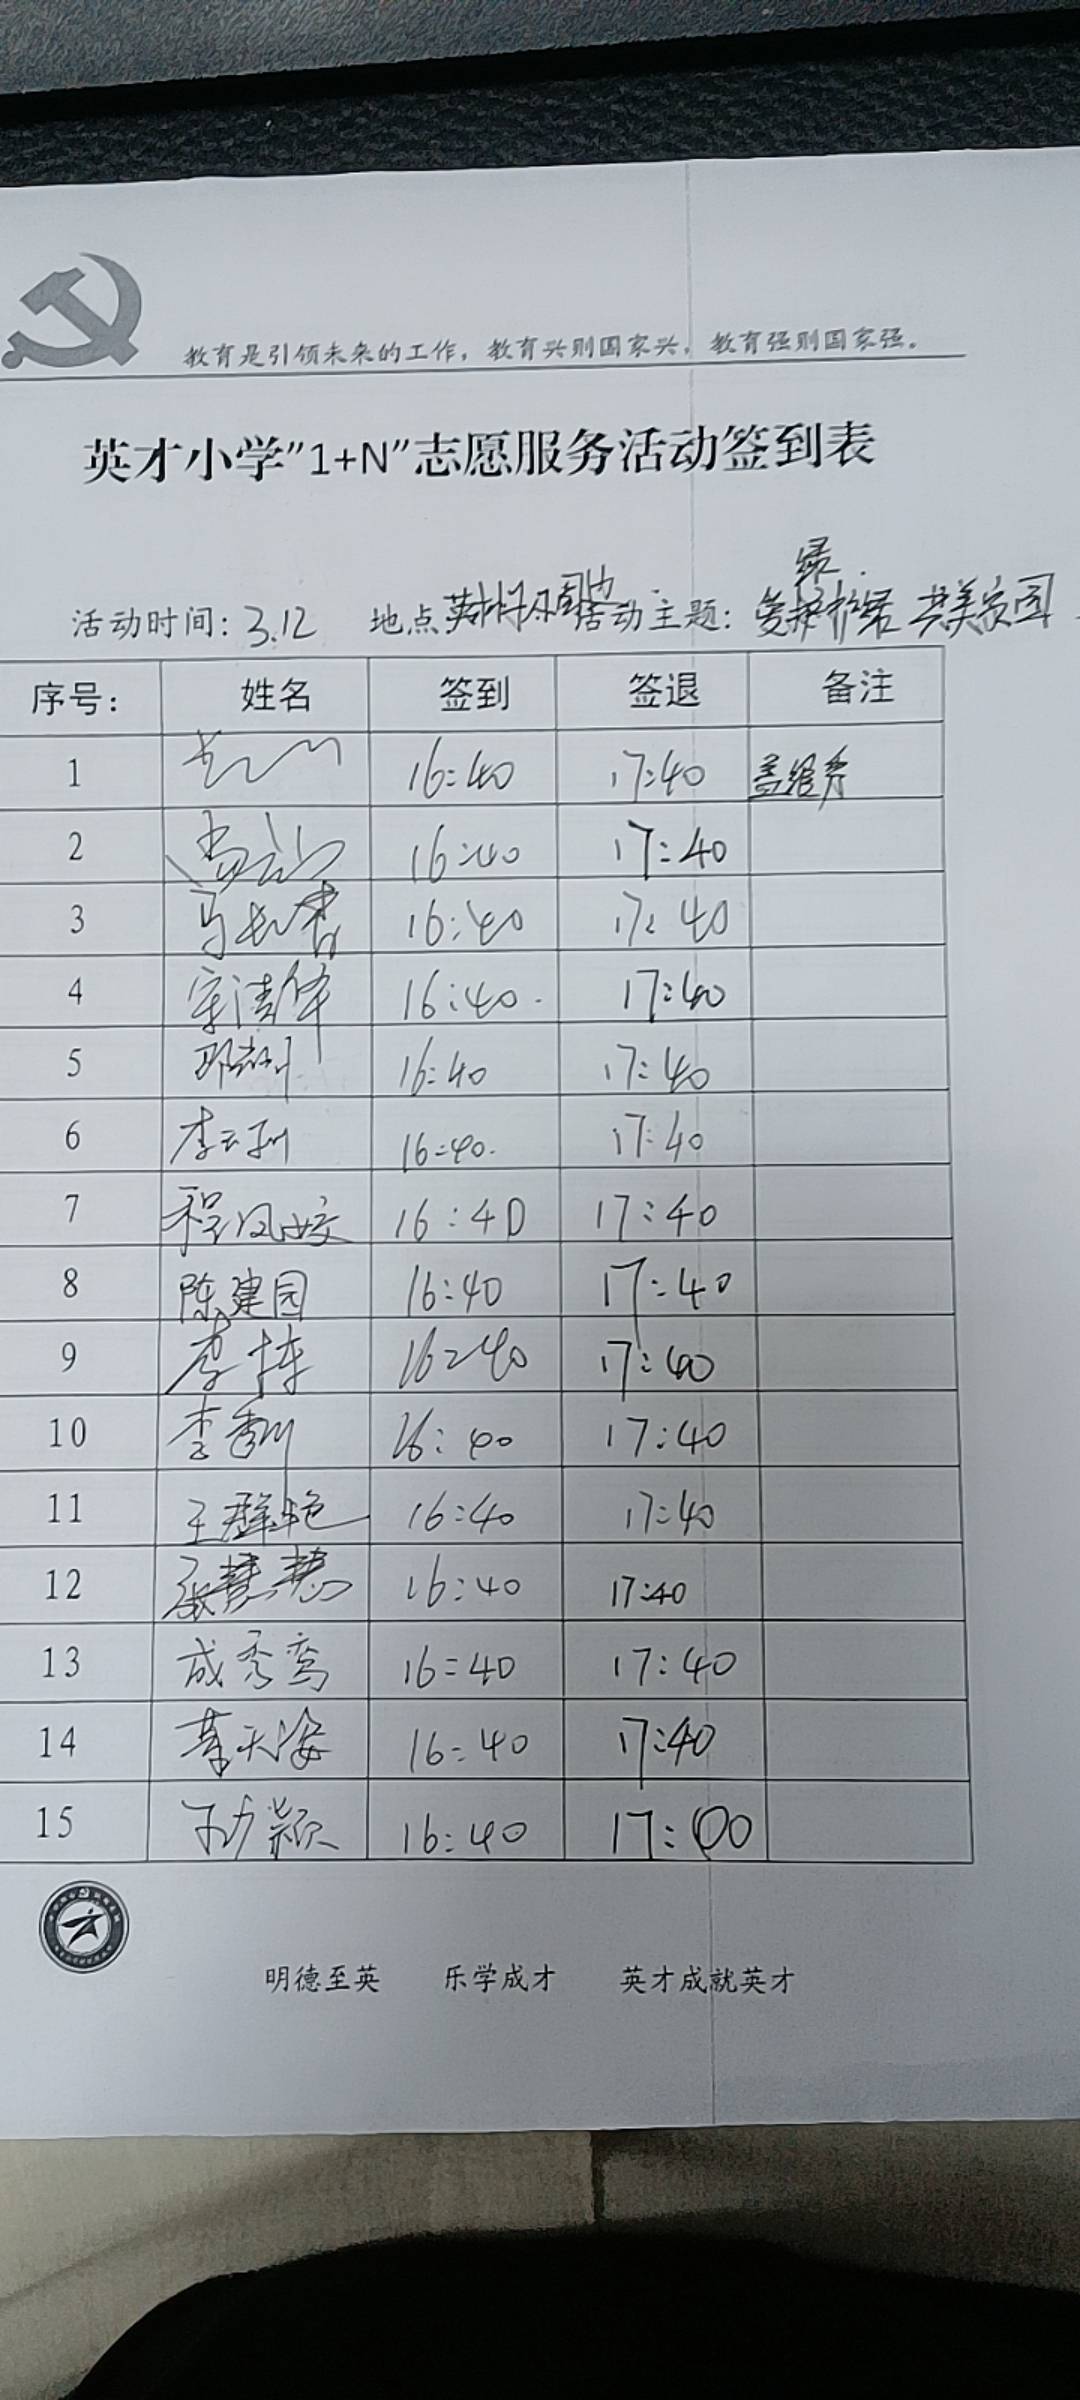 教育是引领未来的工作，教育兴则国家兴，教育强则国家强。
英才小学"1+N"志愿服务活动签到表
活动时间：3.12 地点 活动主题： 共美家园
序号： 姓名 签到 签退 备注
1 16:40 17:40
2 16:40 17:40
3 16:40 17:40
4 宋清华 16:40 17:40
5 16:40 17:40
6 16:40 17:40
7 程凤姣 16:40 17:40
8 陈建园 16:40 17:40
9 16:40 17:40
10 16:40 17:40
11 王群艳 16:40 17:40
12 张慧慧 16:40 17:40
13 成秀鸾 16:40 17:40
14 16:40 17:40
15 16:40 17:00
明德至英 乐学成才 英才成就英才